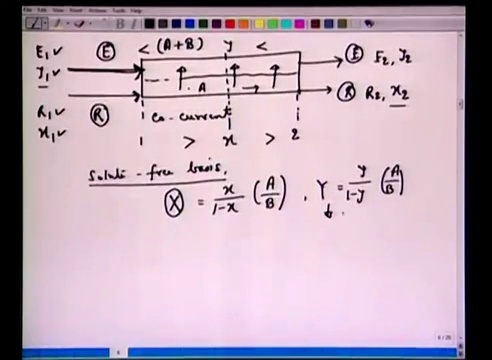 E₁ ✓ (E) < (A+B) y < (E) E₂, y₂
y₁ ✓ A (R) R₂, x₂
R₁ ✓ (R) co-current
x₁ ✓ 1 > x > 2
Solute-free basis,
(X) = x/1-x (A/B), Y = y/1-y (A/B)